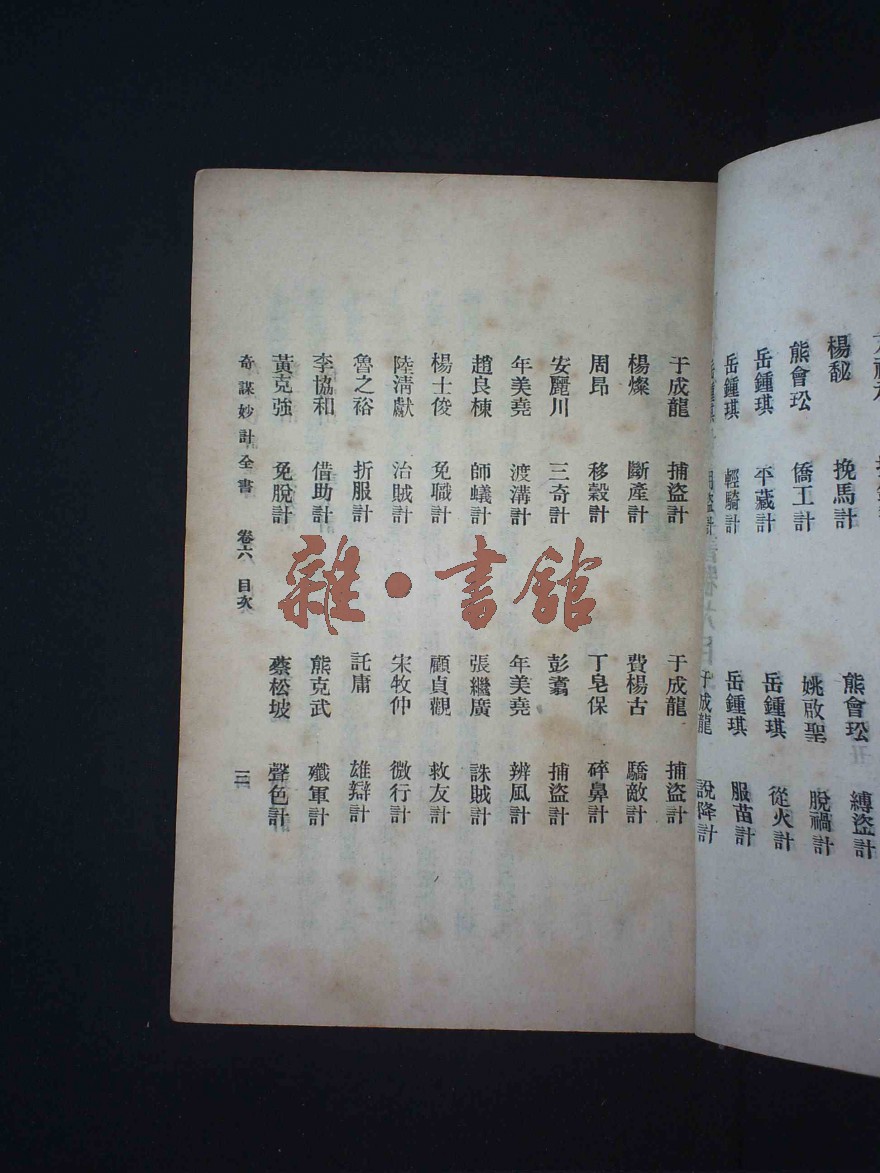 楊馝 挽馬計 熊會玜 縛盜計
熊會玜 僑工計 姚啟聖 脫禍計
岳鍾琪 平藏計 岳鍾琪 從火計
岳鍾琪 輕騎計 岳鍾琪 服苗計
于成龍 說降計
于成龍 捕盜計 于成龍 捕盜計
楊燦 斷產計 費楊古 驕敵計
周昂 移穀計 丁皂保 碎鼻計
安麗川 三奇計 彭翥 捕盜計
年美堯 渡溝計 年美堯 辨風計
趙良棟 師蟻計 張繼廣 誅賊計
楊士俊 免職計 顧貞觀 救友計
陸清獻 治賊計 宋牧仲 微行計
魯之裕 折服計 託庸 雄辯計
李協和 借助計 熊克武 殲軍計
黃克強 免脫計 蔡松坡 聲色計
奇謀妙計全書 卷六 目次 三
雜·書館